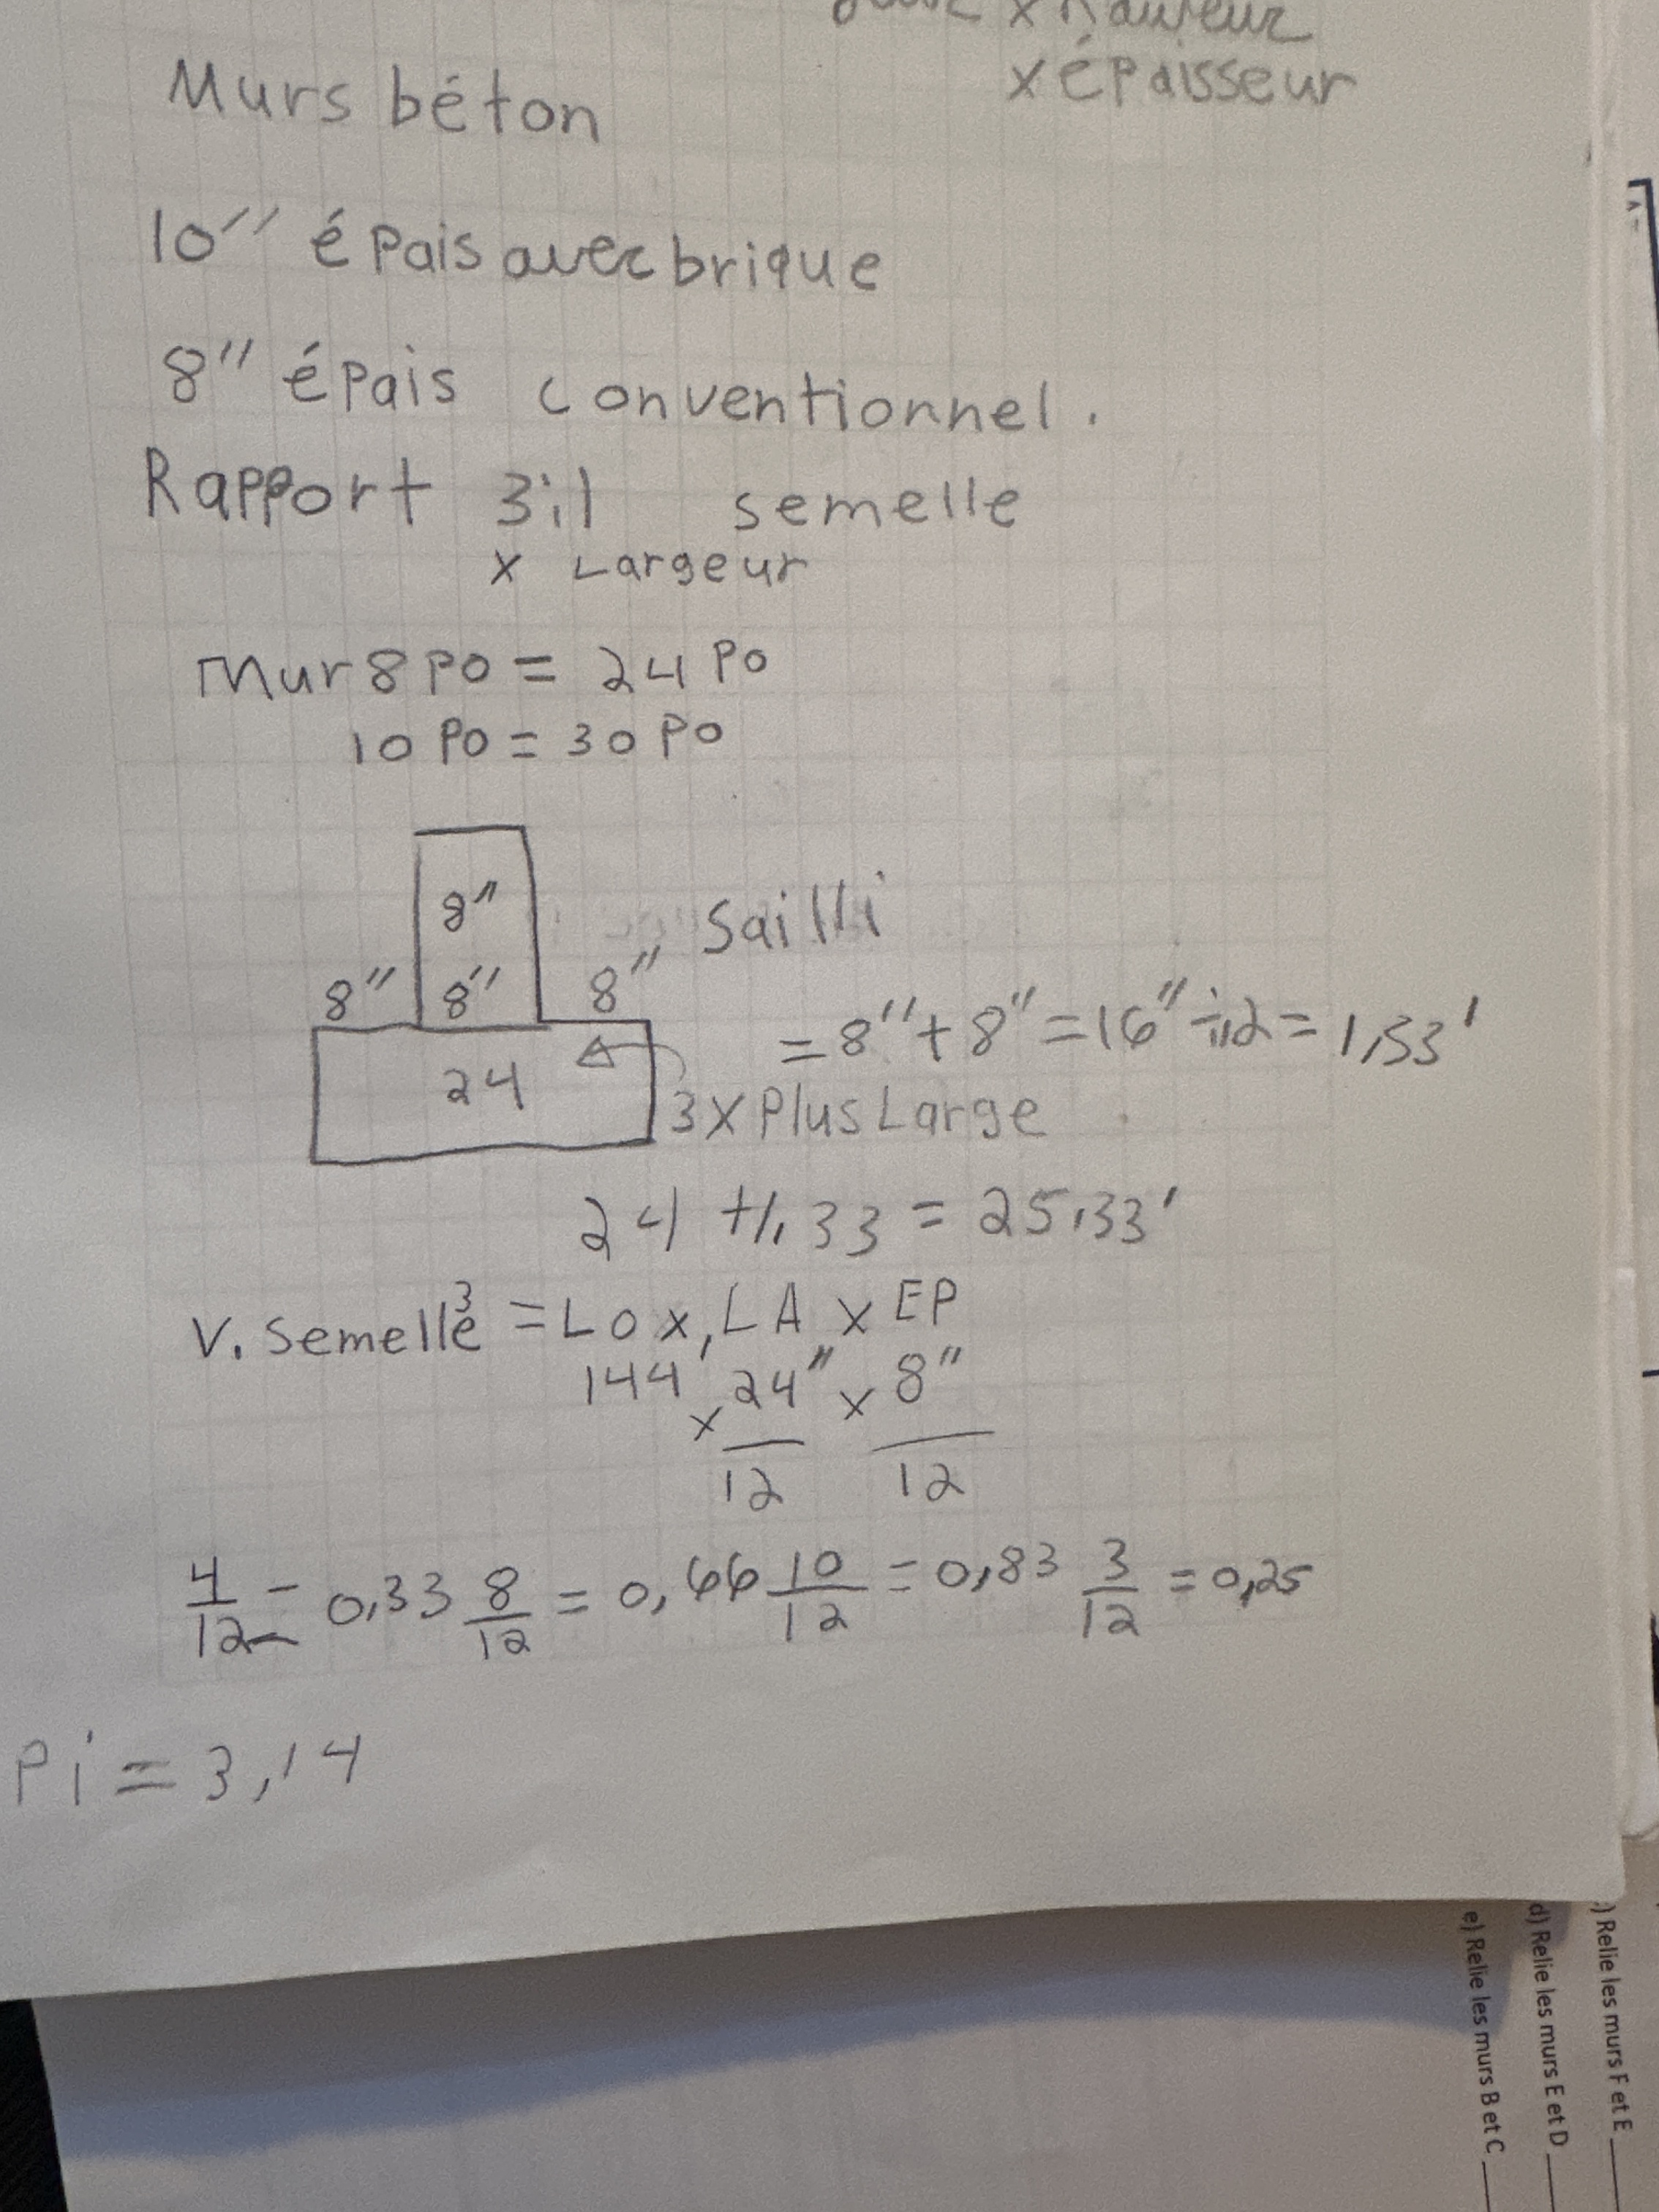 x hauteur
x épaisseur
Murs béton
10" épais avec brique
8" épais conventionnel.
Rapport 3:1 semelle
x Largeur
Mur 8 Po = 24 Po
10 Po = 30 Po
8" Sailli
8" 8" 8"
= 8" + 8" = 16" ÷ 12 = 1,33'
24
3 x Plus Large
24 + 1,33 = 25,33'
V. Semelle³ = LO x, LA x EP
144 x 24" x 8"
12 12
4/12 = 0,33 8/12 = 0,66 10/12 = 0,83 3/12 = 0,25
Pi = 3,14
) Relie les murs F et E
d) Relie les murs E et D
e) Relie les murs B et C